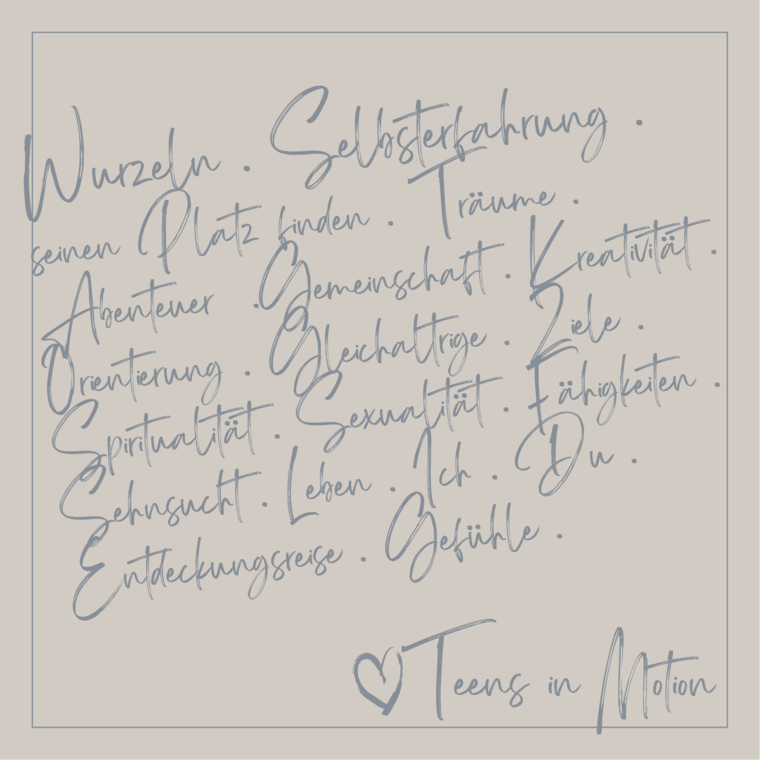 Wurzeln . Selbsterfahrung .
seinen Platz finden . Träume .
Abenteuer . Gemeinschaft . Kreativität .
Orientierung . Gleichaltrige . Ziele .
Spiritualität . Sexualität . Fähigkeiten .
Sehnsucht . Leben . Ich . Du .
Entdeckungsreise . Gefühle .
Teens in Motion